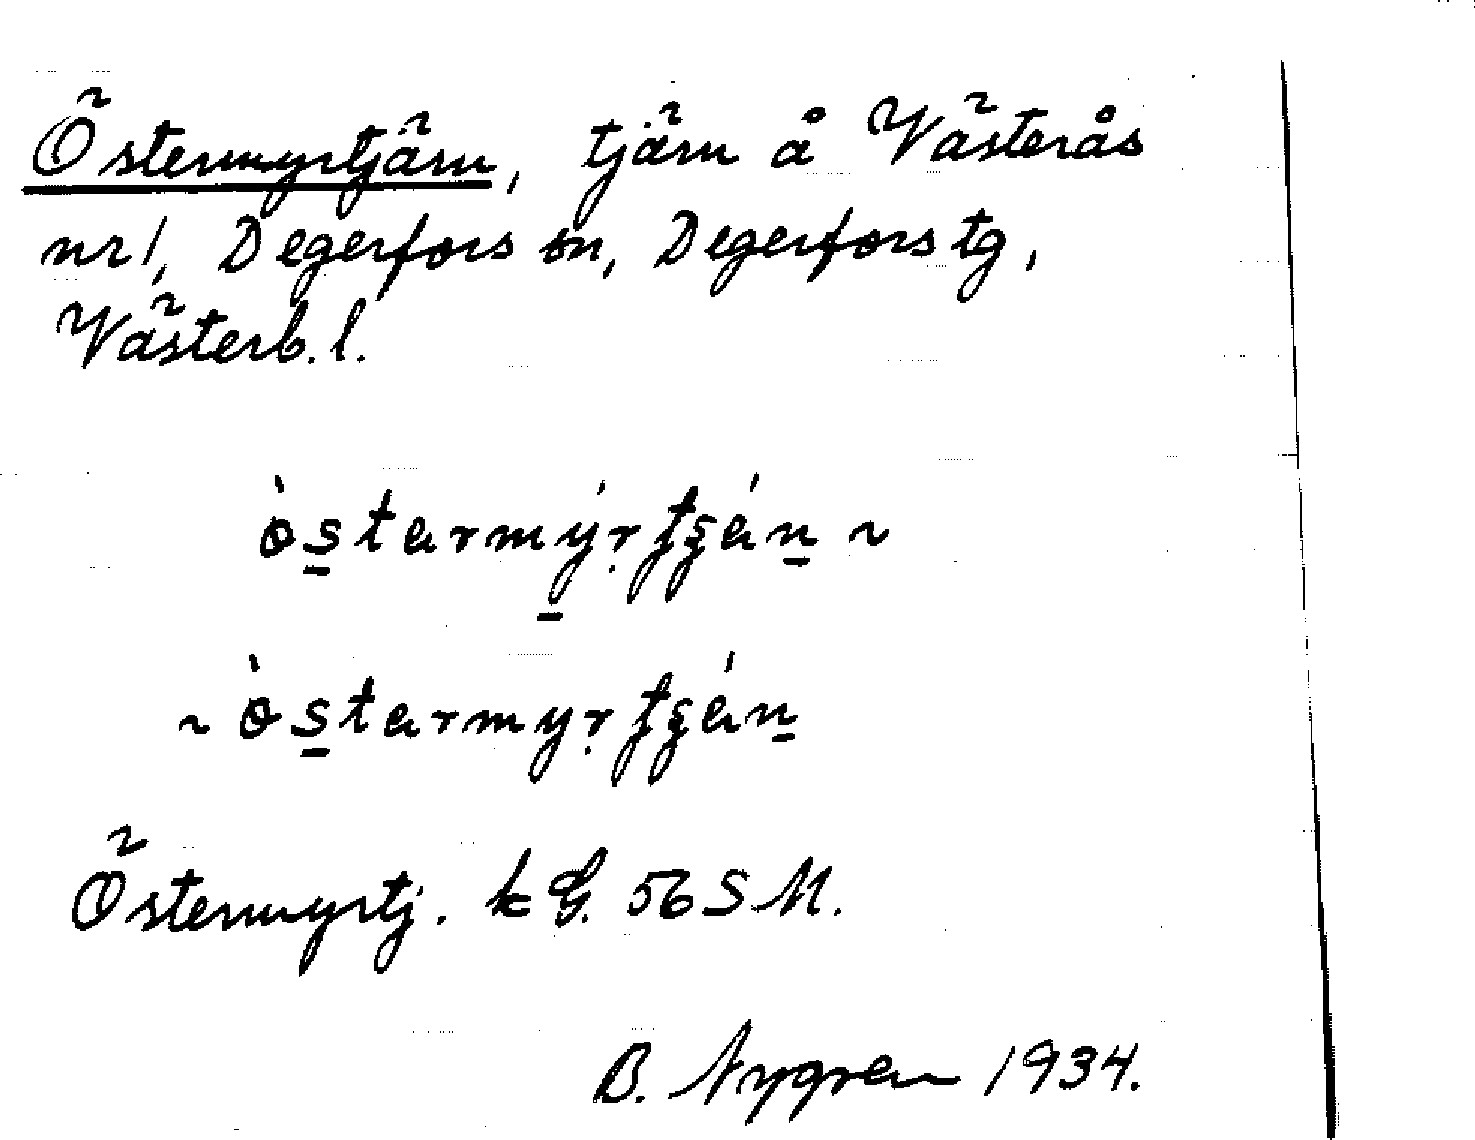 Östermyrtjärn, tjärn å Västerås
nr 1, Degerfors sn, Degerfors tg,
Västerb. l.
Östermyrtj. k G. 56 SM.
B. Nygren 1934.